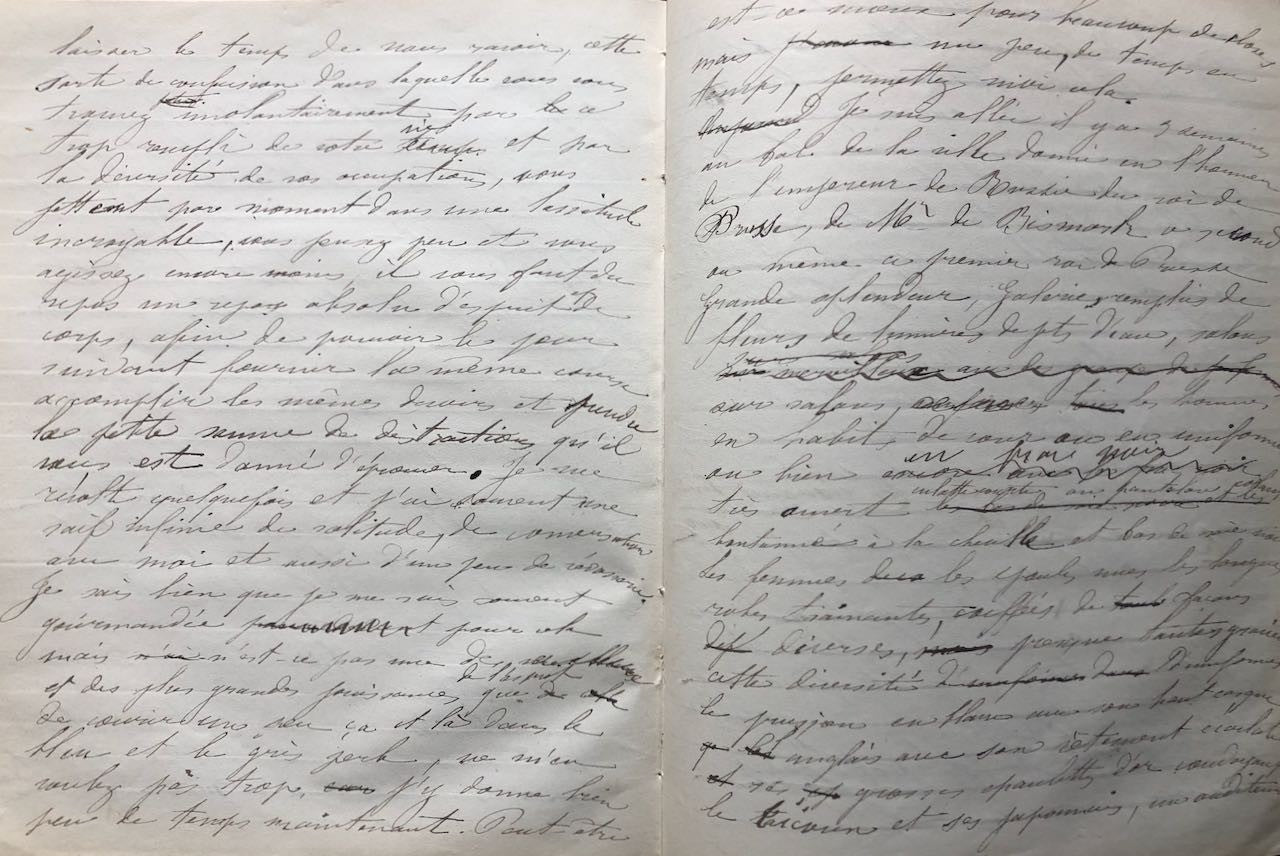 laisser le temps de nous ravoir, cette
sorte de confusion dans laquelle vous vous
trouvez involontairement par le ce
trop rempli de votre temps vie et par
la diversité de vos occupations, vous
jettent par moment dans une lassitude
incroyable, vous pensez peu et vous
agissez encore moins, il vous faut du
repos un repos absolu d'esprit et de
corps, afin de pouvoir le jour
suivant fournir la même course
accomplir les mêmes devoirs et prendre
la petite somme de distractions qu'il
vous est donné d'éprouver. Je me
révolte quelquefois et j'ai souvent une
soif infinie de solitude, de conversation
avec moi et aussi d'un peu de rêvasserie.
Je sais bien que je me suis souvent
gourmandée pour cela
mais n'est-ce pas une des
et des plus grandes jouissances de l'esprit que de
de courir un peu çà et là dans le
bleu et le gris perle, ne m'en
voulez pas trop, j'y donne bien
peu de temps maintenant. Peut-être
est-ce mieux pour beaucoup de choses
mais un peu, de temps en
temps, permettez moi cela.
Je suis allée il y a 3 semaines
au bal de la ville donné en l'honneur
de l'empereur de Russie du roi de
Prusse, de Mr de Bismark ce second
ou même ce premier roi de Prusse
Grande splendeur, Galeries remplies de
fleurs de lumières de jets d'eau, salons
sur salons, les hommes
en habits de cour ou en uniforme
ou bien en frac noir
très ouvert culotte courte ou pantalon collant
boutonné à la cheville et bas de soie noir
les femmes les épaules nues les longues
robes trainantes, coiffées de façons
diverses, presque toutes gracieuses
cette diversité d'uniformes
le prussien en blanc avec son haut casque
anglais avec son vêtement écarlate
et ses grosses épaulettes d'or coudoyant
le tricorne et ses japonais, un auditeur